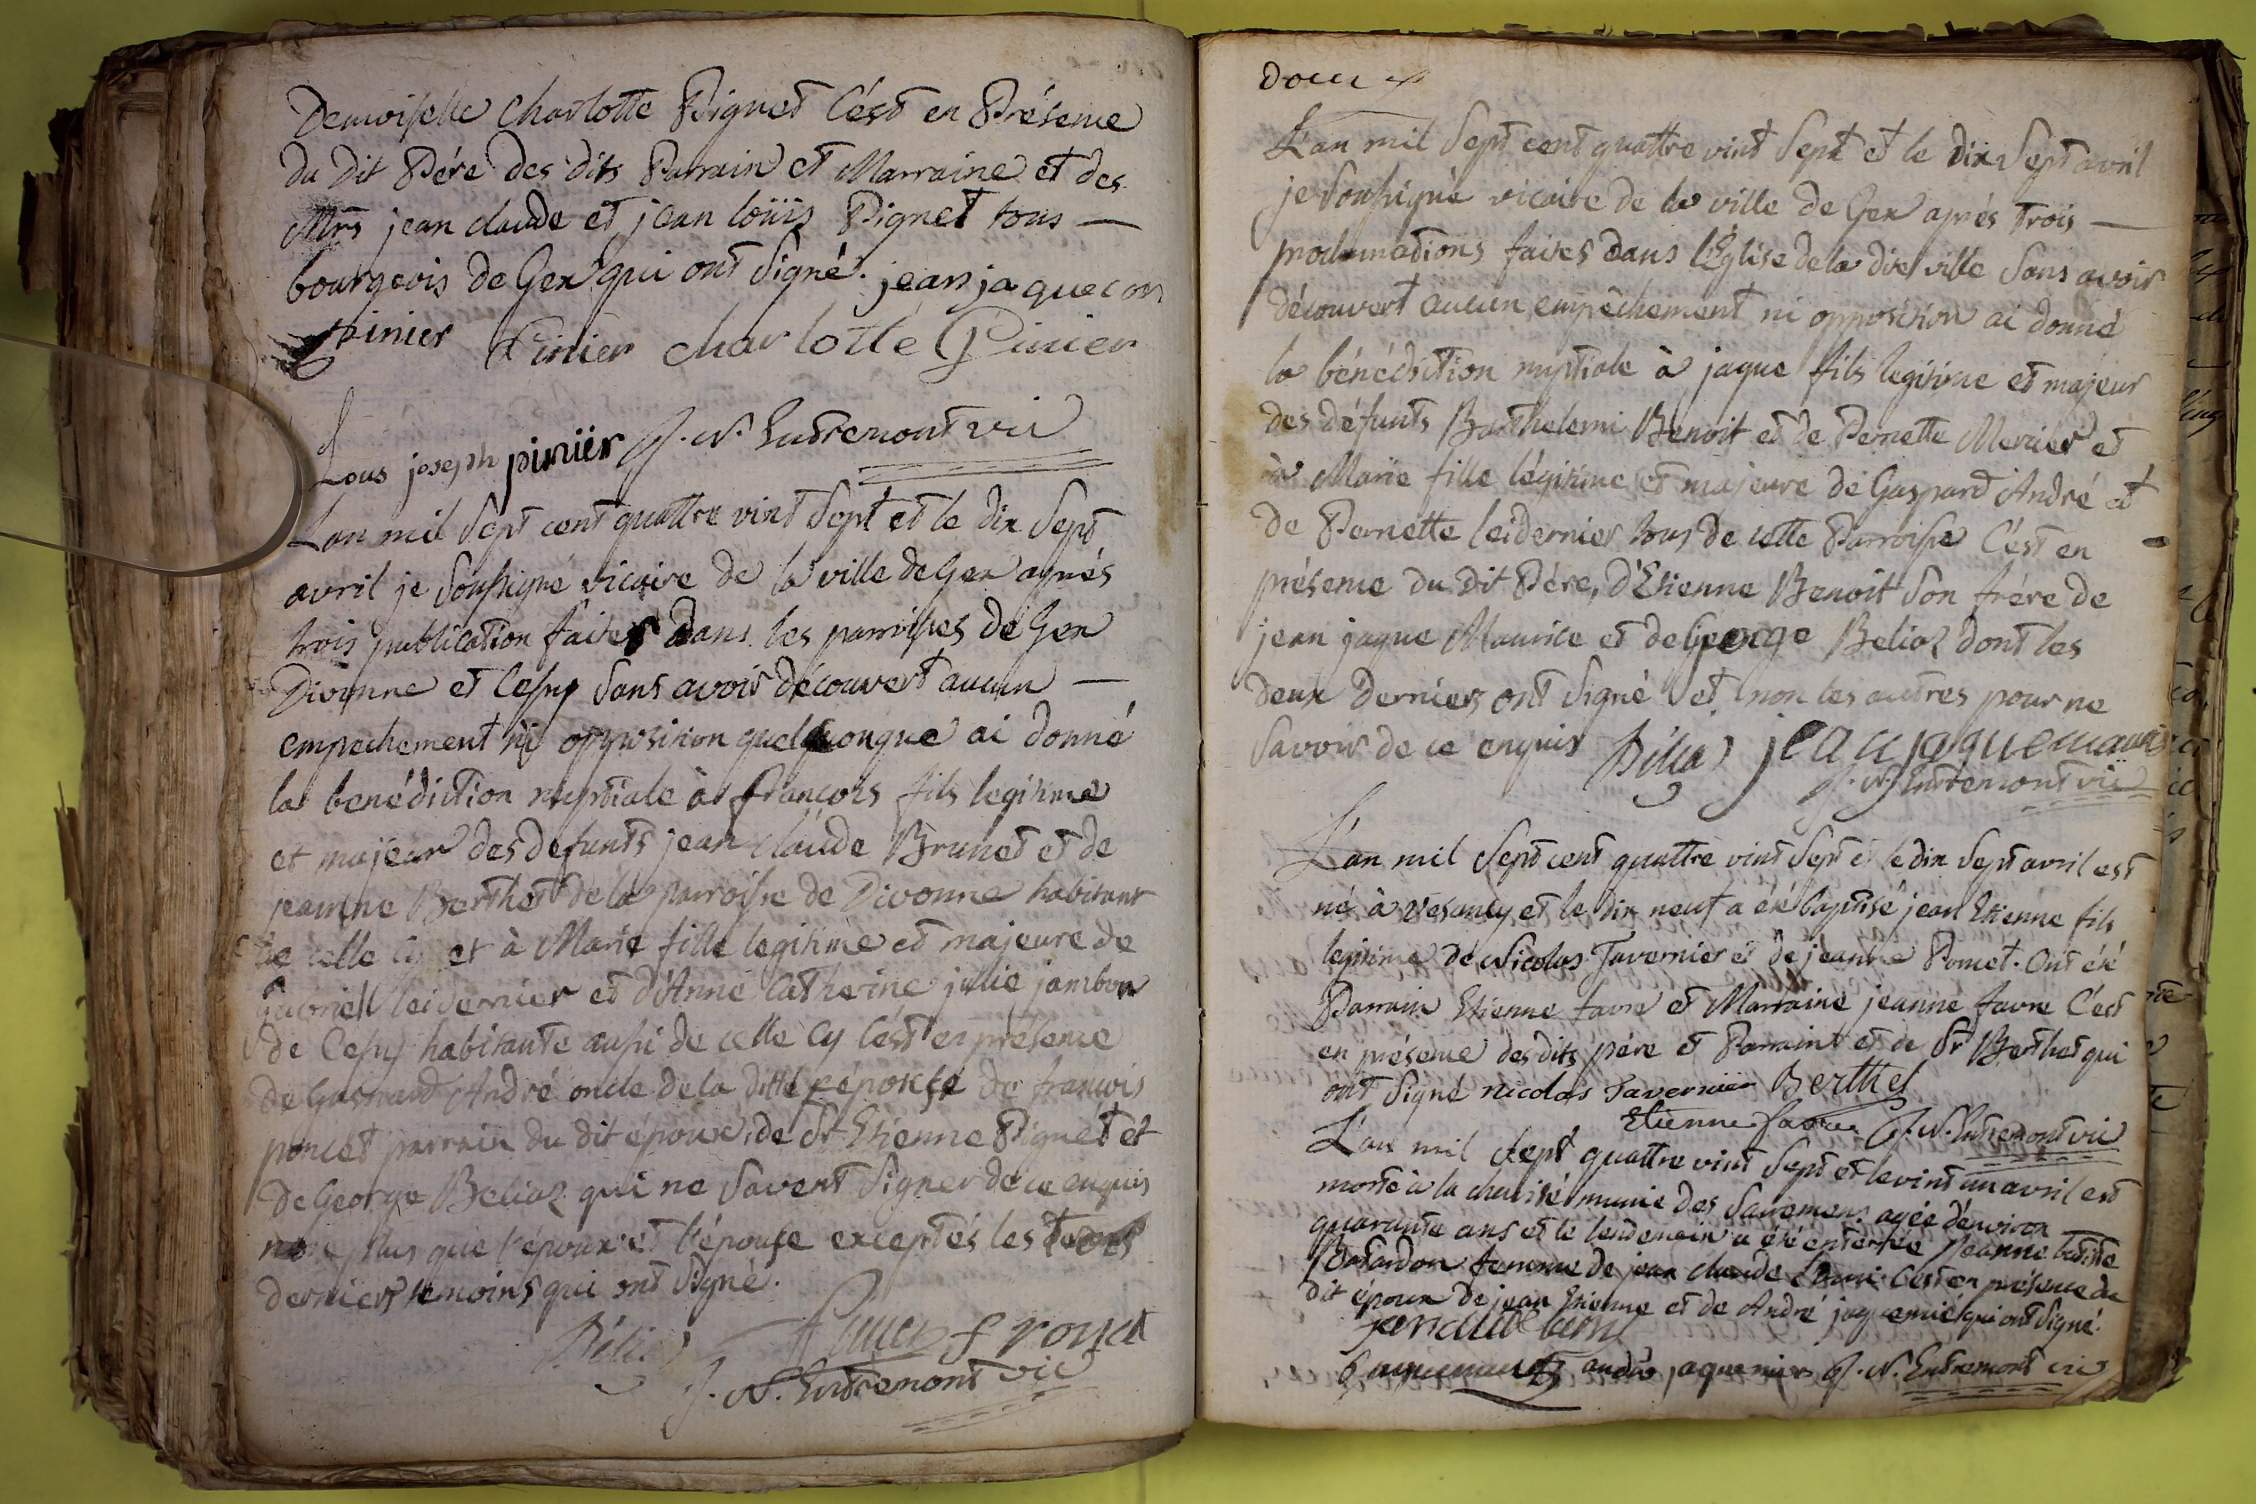 Demoiselle Charlotte Pignet C'est en Présence
du dit Pére des dits Parrain et Marraine et des
Mrs jean claude et jean loüis Pignet tous —
bourgeois de Gex qui ont signé. jean jaque
pinier Pinier charlotte Pinier
Lous joseph pinier J. N. Entremont vic
L'an mil sept cent quattre vint sept et le dix sept
avril je soussigné vicaire de la ville de Gex aprés
trois publication faites dans les parroisses de Gex
Divonne et Cessy sans avoir découvert aucun —
empechement ni opposition quelquonque ai donné
la benédiction nuptiale à françois fils legitime
et majeur des defunts jean claude Brunet et de
jeanne Berthet de la parroisse de Divonne habitant
de celle cy et à Marie fille legitime et majeure de
Gabriell leidernier et d'Anne Catherine julie jambon
de Cessy habitante aussi de celle cy c'est en présence
de Gaspard André oncle de la ditte épouse de francois
poncet parrain du dit époux, de Sr Etienne Pignet et
de George Belioz qui ne savent signer de ce enquis
non plus que l'époux et l'épouse exceptés les
derniers temoins qui ont signé.
J. N. Entremont vic
L'an mil sept cent quattre vint sept et le dix sept avril
je soussigné vicaire de la ville de Gex aprés trois —
proclamations faites dans l'Église de la dite ville sans avoir
découvert aucun empêchement ni opposition ai donné
la bénédiction nuptiale à jaque fils legitime et majeur
des défunts Barthelemi Benoit et de Pernette Mercier et
à Marie fille légitime et majeure de Gaspard André et
de Pernette leidernier tous de cette Parroisse C'est en
présence du dit Pére, d'Etienne Benoit son frére de
jean jaque Maurice et de George Belioz dont les
deux derniers ont signé et non les autres pour ne
savoir de ce enquis jean jaque mauri
J. N. Entremont vic
L'an mil sept cent quattre vint sept et le dix sept avril est
né à vesancy et le dix neuf a été baptisé jean Etienne fils
legitime de Nicolas Tavernier et de jeanne Pomet. Ont été
Parrain Etienne favre et Marraine jeanne favre C'est
en présence des dits pére et Parrain et de Sr Berthet qui
ont signé nicolas Tavernier Berthet
Etienne favre J. N. Entremont vic
L'an mil sept quattre vint sept et le vint un avril est
morte à la charité munie des sacremens agée d'environ
quarante ans et le lendemain a été enterrée
femme de jean claude C'est en présence du
dit époux de jean Etienne et de André jaquemié qui ont signé.
andré jaquemier J. N. Entremont vic